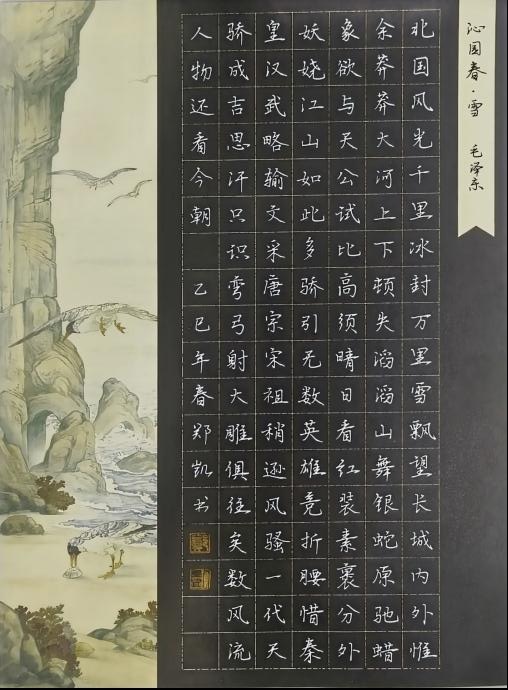 沁园春·雪 毛泽东
北国风光千里冰封万里雪飘望长城内外惟
余莽莽大河上下顿失滔滔山舞银蛇原驰蜡
象欲与天公试比高须晴日看红装素裹分外
妖娆江山如此多骄引无数英雄竞折腰惜秦
皇汉武略输文采唐宗宋祖稍逊风骚一代天
骄成吉思汗只识弯弓射大雕俱往矣数风流
人物还看今朝 乙巳年春郑凯书